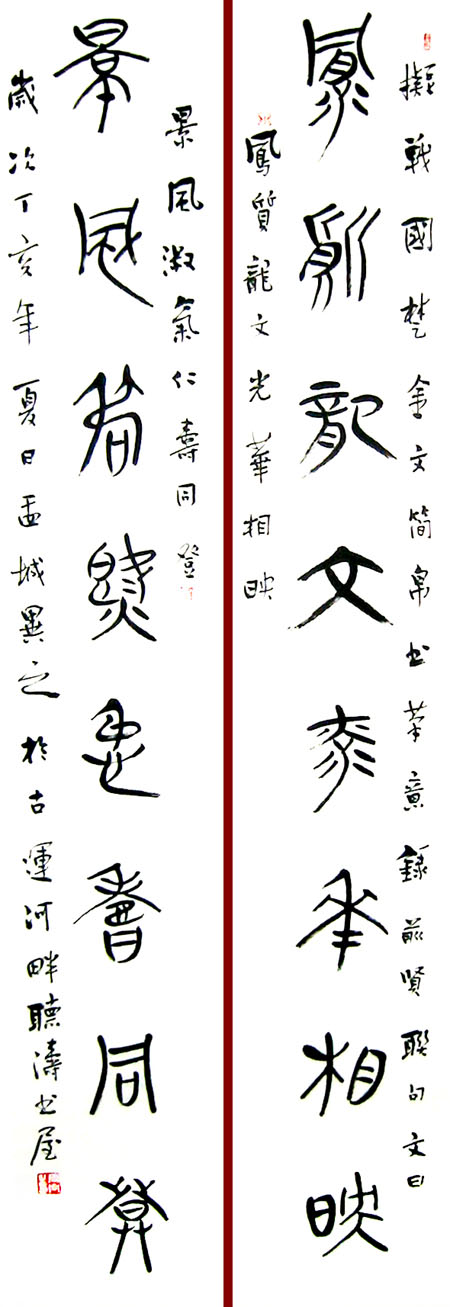 擬戰國楚金文簡帛書筆意錄前賢聯句文曰
鳳質龍文光華相映
鳳質龍文光華相映
景風淑氣仁壽同登
景風淑氣仁壽同登
歲次丁亥年夏日盂城異之於古運河畔聽濤書屋